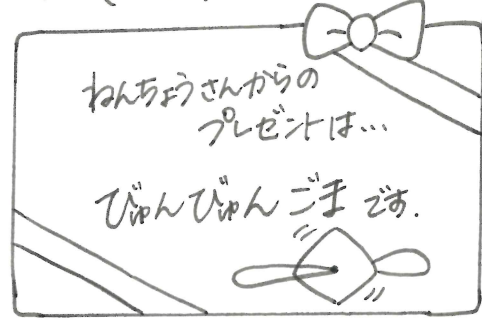 ねんちょうさんからの
プレゼントは…
びゅんびゅんごまです.